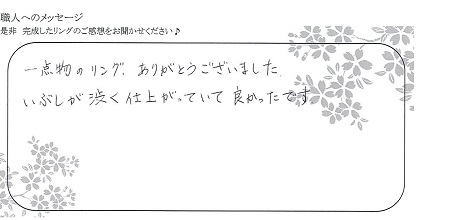 職人へのメッセージ
是非 完成したリングのご感想をお聞かせください♪
一点物のリング、ありがとうございました。
いぶしが渋く仕上がっていて良かったです